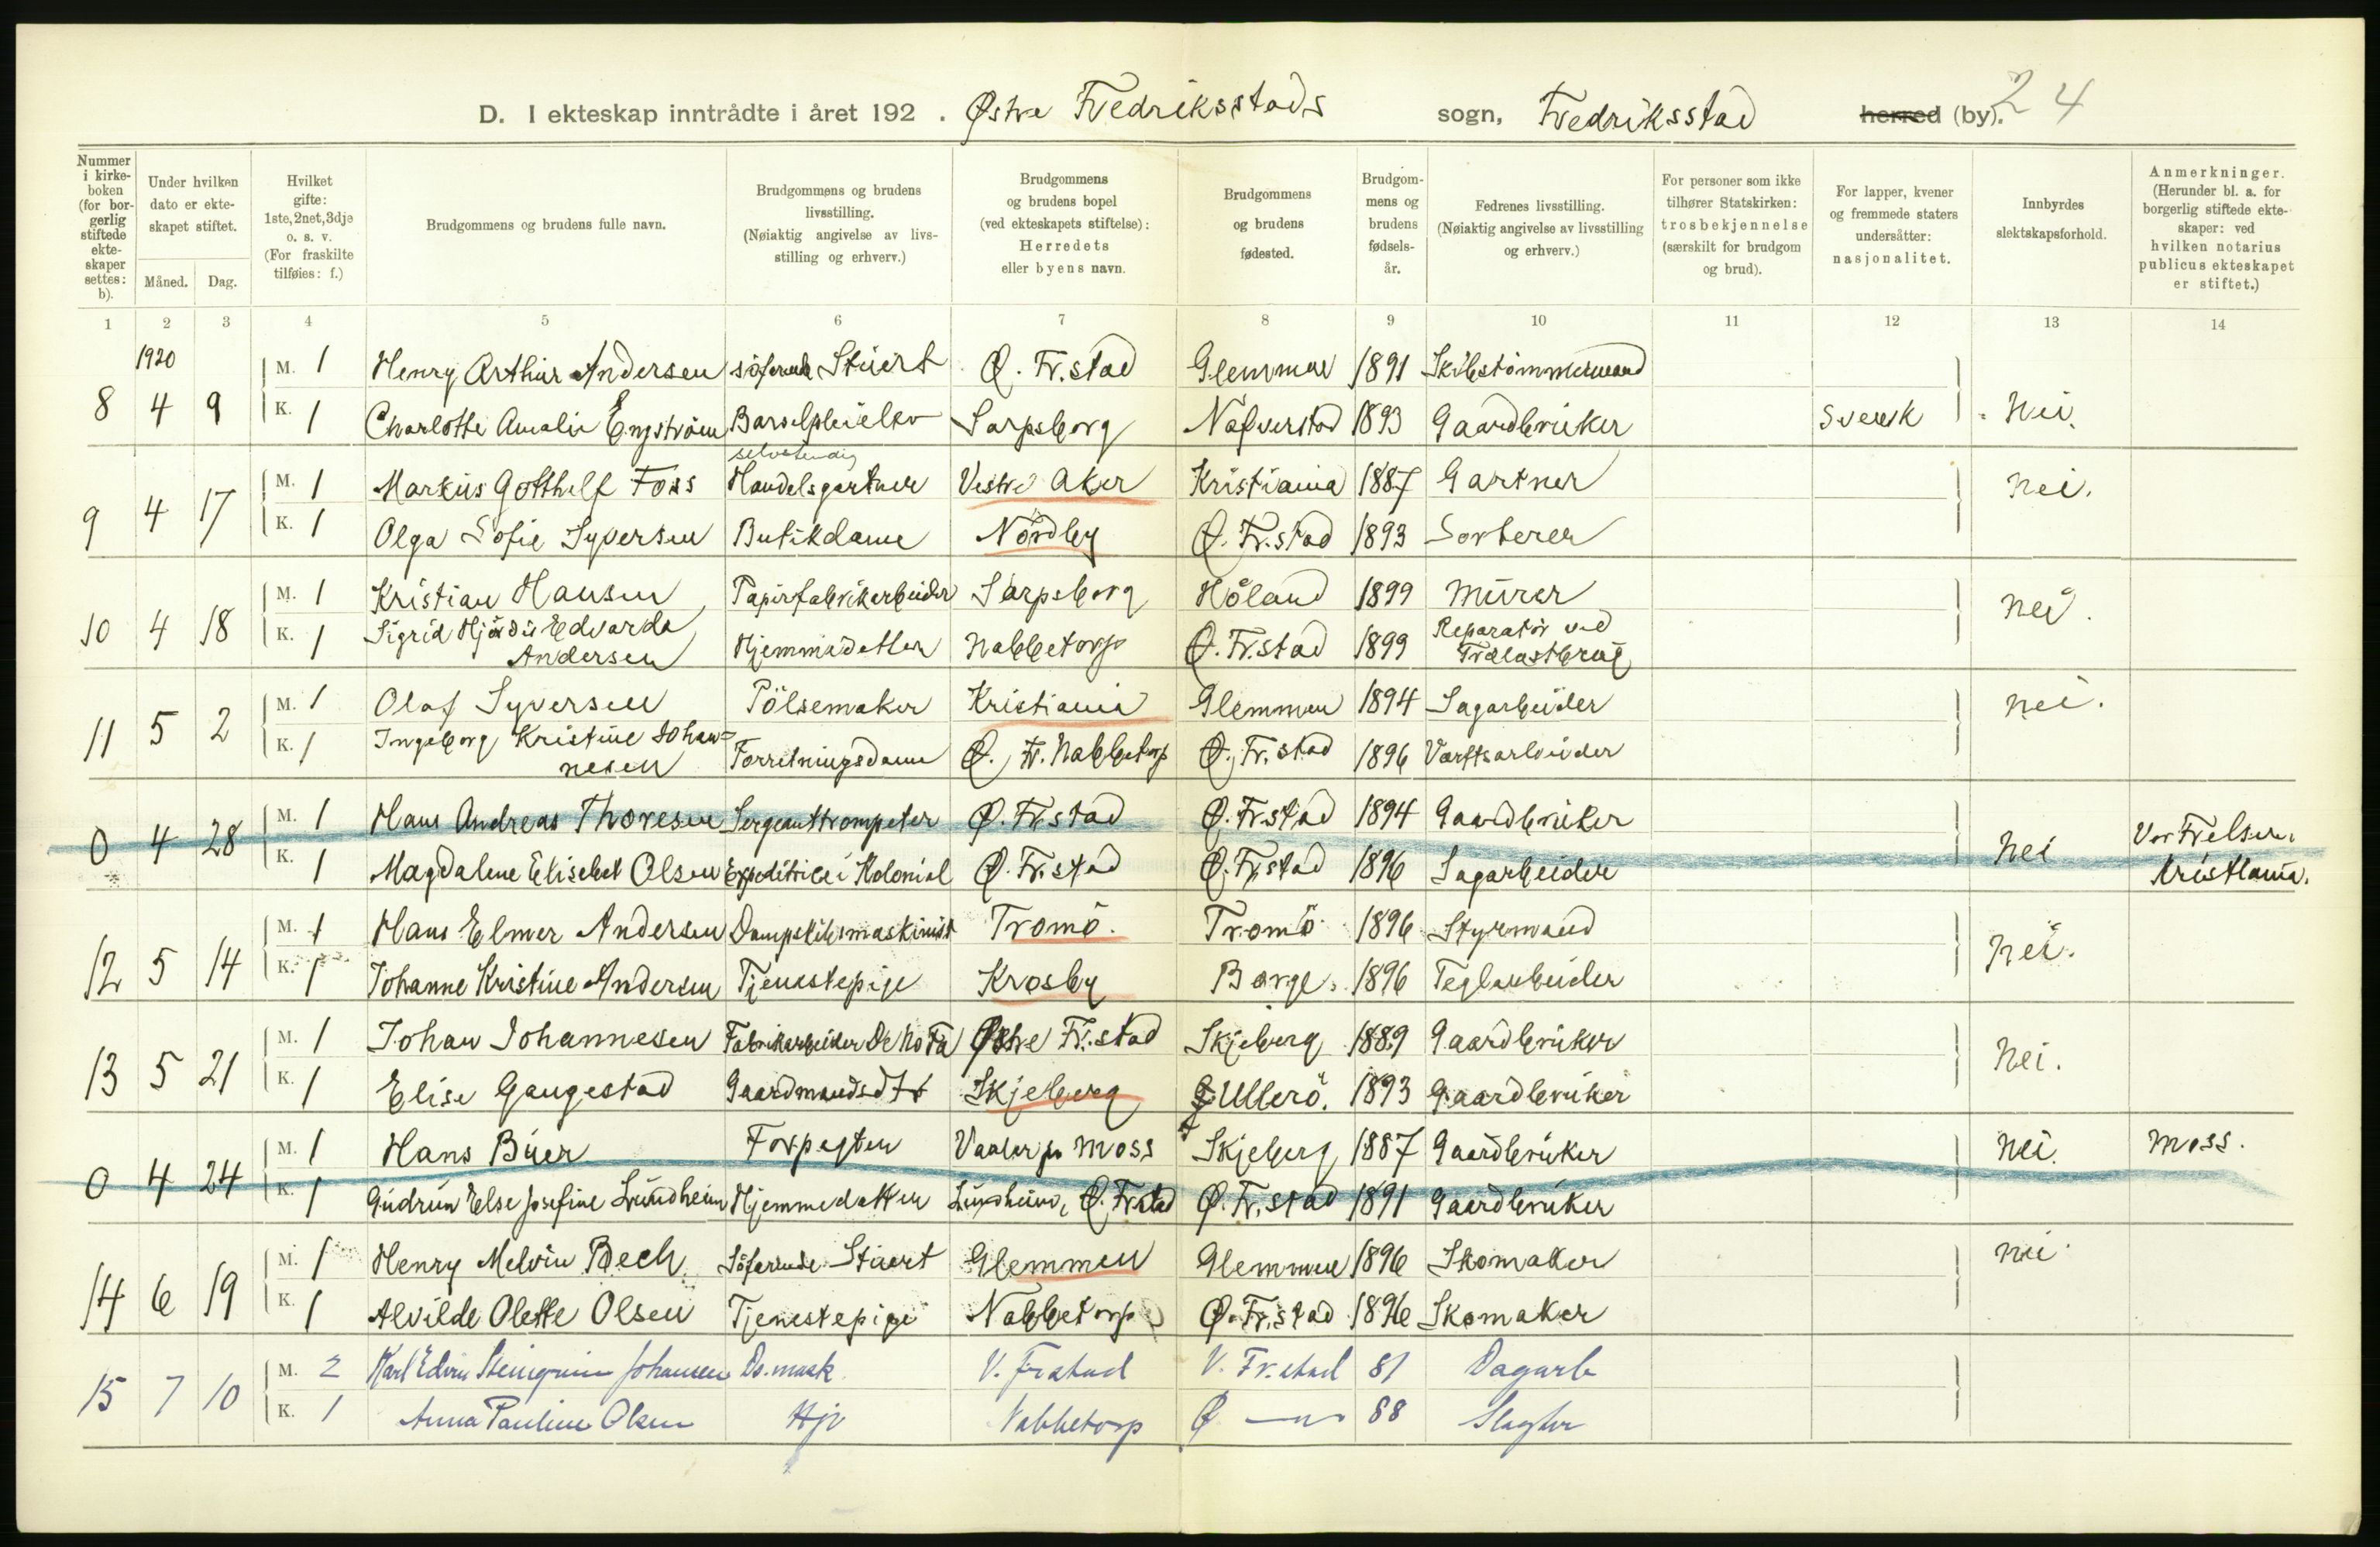 D. I ekteskap inntrådte i året 192 . Østre Fredriksstads sogn, Fredriksstad herred (by). 24
Nummer i kirkeboken (for borgerlig stiftede ekteskaper settes: b).
Under hvilken dato er ekteskapet stiftet.
Måned. Dag.
Hvilket gifte: 1ste, 2net, 3dje o. s. v. (For fraskilte tilføies: f.)
Brudgommens og brudens fulle navn.
Brudgommens og brudens livsstilling. (Nøiaktig angivelse av livsstilling og erhverv.)
Brudgommens og brudens bopel (ved ekteskapets stiftelse): Herredets eller byens navn.
Brudgommens og brudens fødested.
Brudgommens og brudens fødselsår.
Fedrenes livsstilling. (Nøiaktig angivelse av livsstilling og erhverv.)
For personer som ikke tilhører Statskirken: trosbekjennelse (særskilt for brudgom og brud).
For lapper, kvener og fremmede staters undersåtter: nasjonalitet.
Innbyrdes slektskapsforhold.
Anmerkninger. (Herunder bl. a. for borgerlig stiftede ekteskaper: ved hvilken notarius publicus ekteskapet er stiftet.)
1 2 3 4 5 6 7 8 9 10 11 12 13 14
1920
M. 1 Henry Arthur Andersen söfarende Stuert Ø. Fr.stad Glemmen 1891 Skibstømmermand
8 4 9 K. 1 Charlotte Amalie Engström Barselpleierske Sarpsborg Nafverstad 1893 Gaardbruker Svensk Nei.
selvstendig
9 4 17 M. 1 Markus Gotthelf Foss Handelsgartner Vestre Aker Kristiania 1887 Gartner nei.
K. 1 Olga Sofie Syversen Butikdame Nordby Ø. Fr.stad 1893 Sorterer
10 4 18 M. 1 Kristian Hansen Papirfabrikarbeider Sarpsborg Høland 1899 Murer nei.
K. 1 Sigrid Hjørdis Edvarda Andersen Hjemmedatter Nabbetorp Ø. Fr.stad 1899 Reparatör ved Trælastbrug
11 5 2 M. 1 Olaf Syversen Pölsemaker Kristiania Glemmen 1894 Sagarbeider nei.
K. 1 Ingeborg Kristine Johannesen Forretningsdame Ø. Fr. Nabbetorp Ø. Fr.stad 1896 Værftsarbeider
0 4 28 M. 1 Hans Andreas Thoresen Sergeanttrompeter Ø. Fr.stad Ø. Fr.stad 1894 Gaardbruker nei Vor Frelsers
K. 1 Magdalene Elisebet Olsen Expeditrice i Kolonial Ø. Fr.stad Ø. Fr.stad 1896 Sagarbeider Kristiania.
12 5 14 M. 1 Hans Elmer Andersen Dampskibsmaskinist Tromö. Tromö 1896 Styrmand nei.
K. 1 Johanne Kristine Andersen Tjenestepige Krosby Borge. 1896 Teglarbeider
13 5 21 M. 1 Johan Johannesen Fabrikarbeider De No Fa Østre Fr.stad Skjeberg 1889 Gaardbruker nei.
K. 1 Elise Gaugestad Gaardmandsdtr Skjeberg Ullerö. 1893 Gaardbruker
0 4 24 M. 1 Hans Buer Forpagter Vaaler pr Moss Skjeberg 1887 Gaardbruker nei. Moss.
K. 1 Gudrun Else Josefine Lundheim Hjemmedatter Lundheim, Ø. Fr.stad Ø. Fr.stad 1891 Gaardbruker
14 6 19 M. 1 Henry Melvin Bech Söfarende Stuert Glemmen Glemmen 1896 Skomaker nei
K. 1 Alvilde Olette Olsen Tjenestepige Nabbetorp Ø. Fr.stad 1896 Skomaker
15 7 10 M. 2 Karl Edvin Steingrim Johansen Ds. mask. V. Frstad V. Fr.stad 81 Dagarb
K. 1 Anna Pauline Olsen Hjv Nabbetorp Ø —"— 88 Slagter